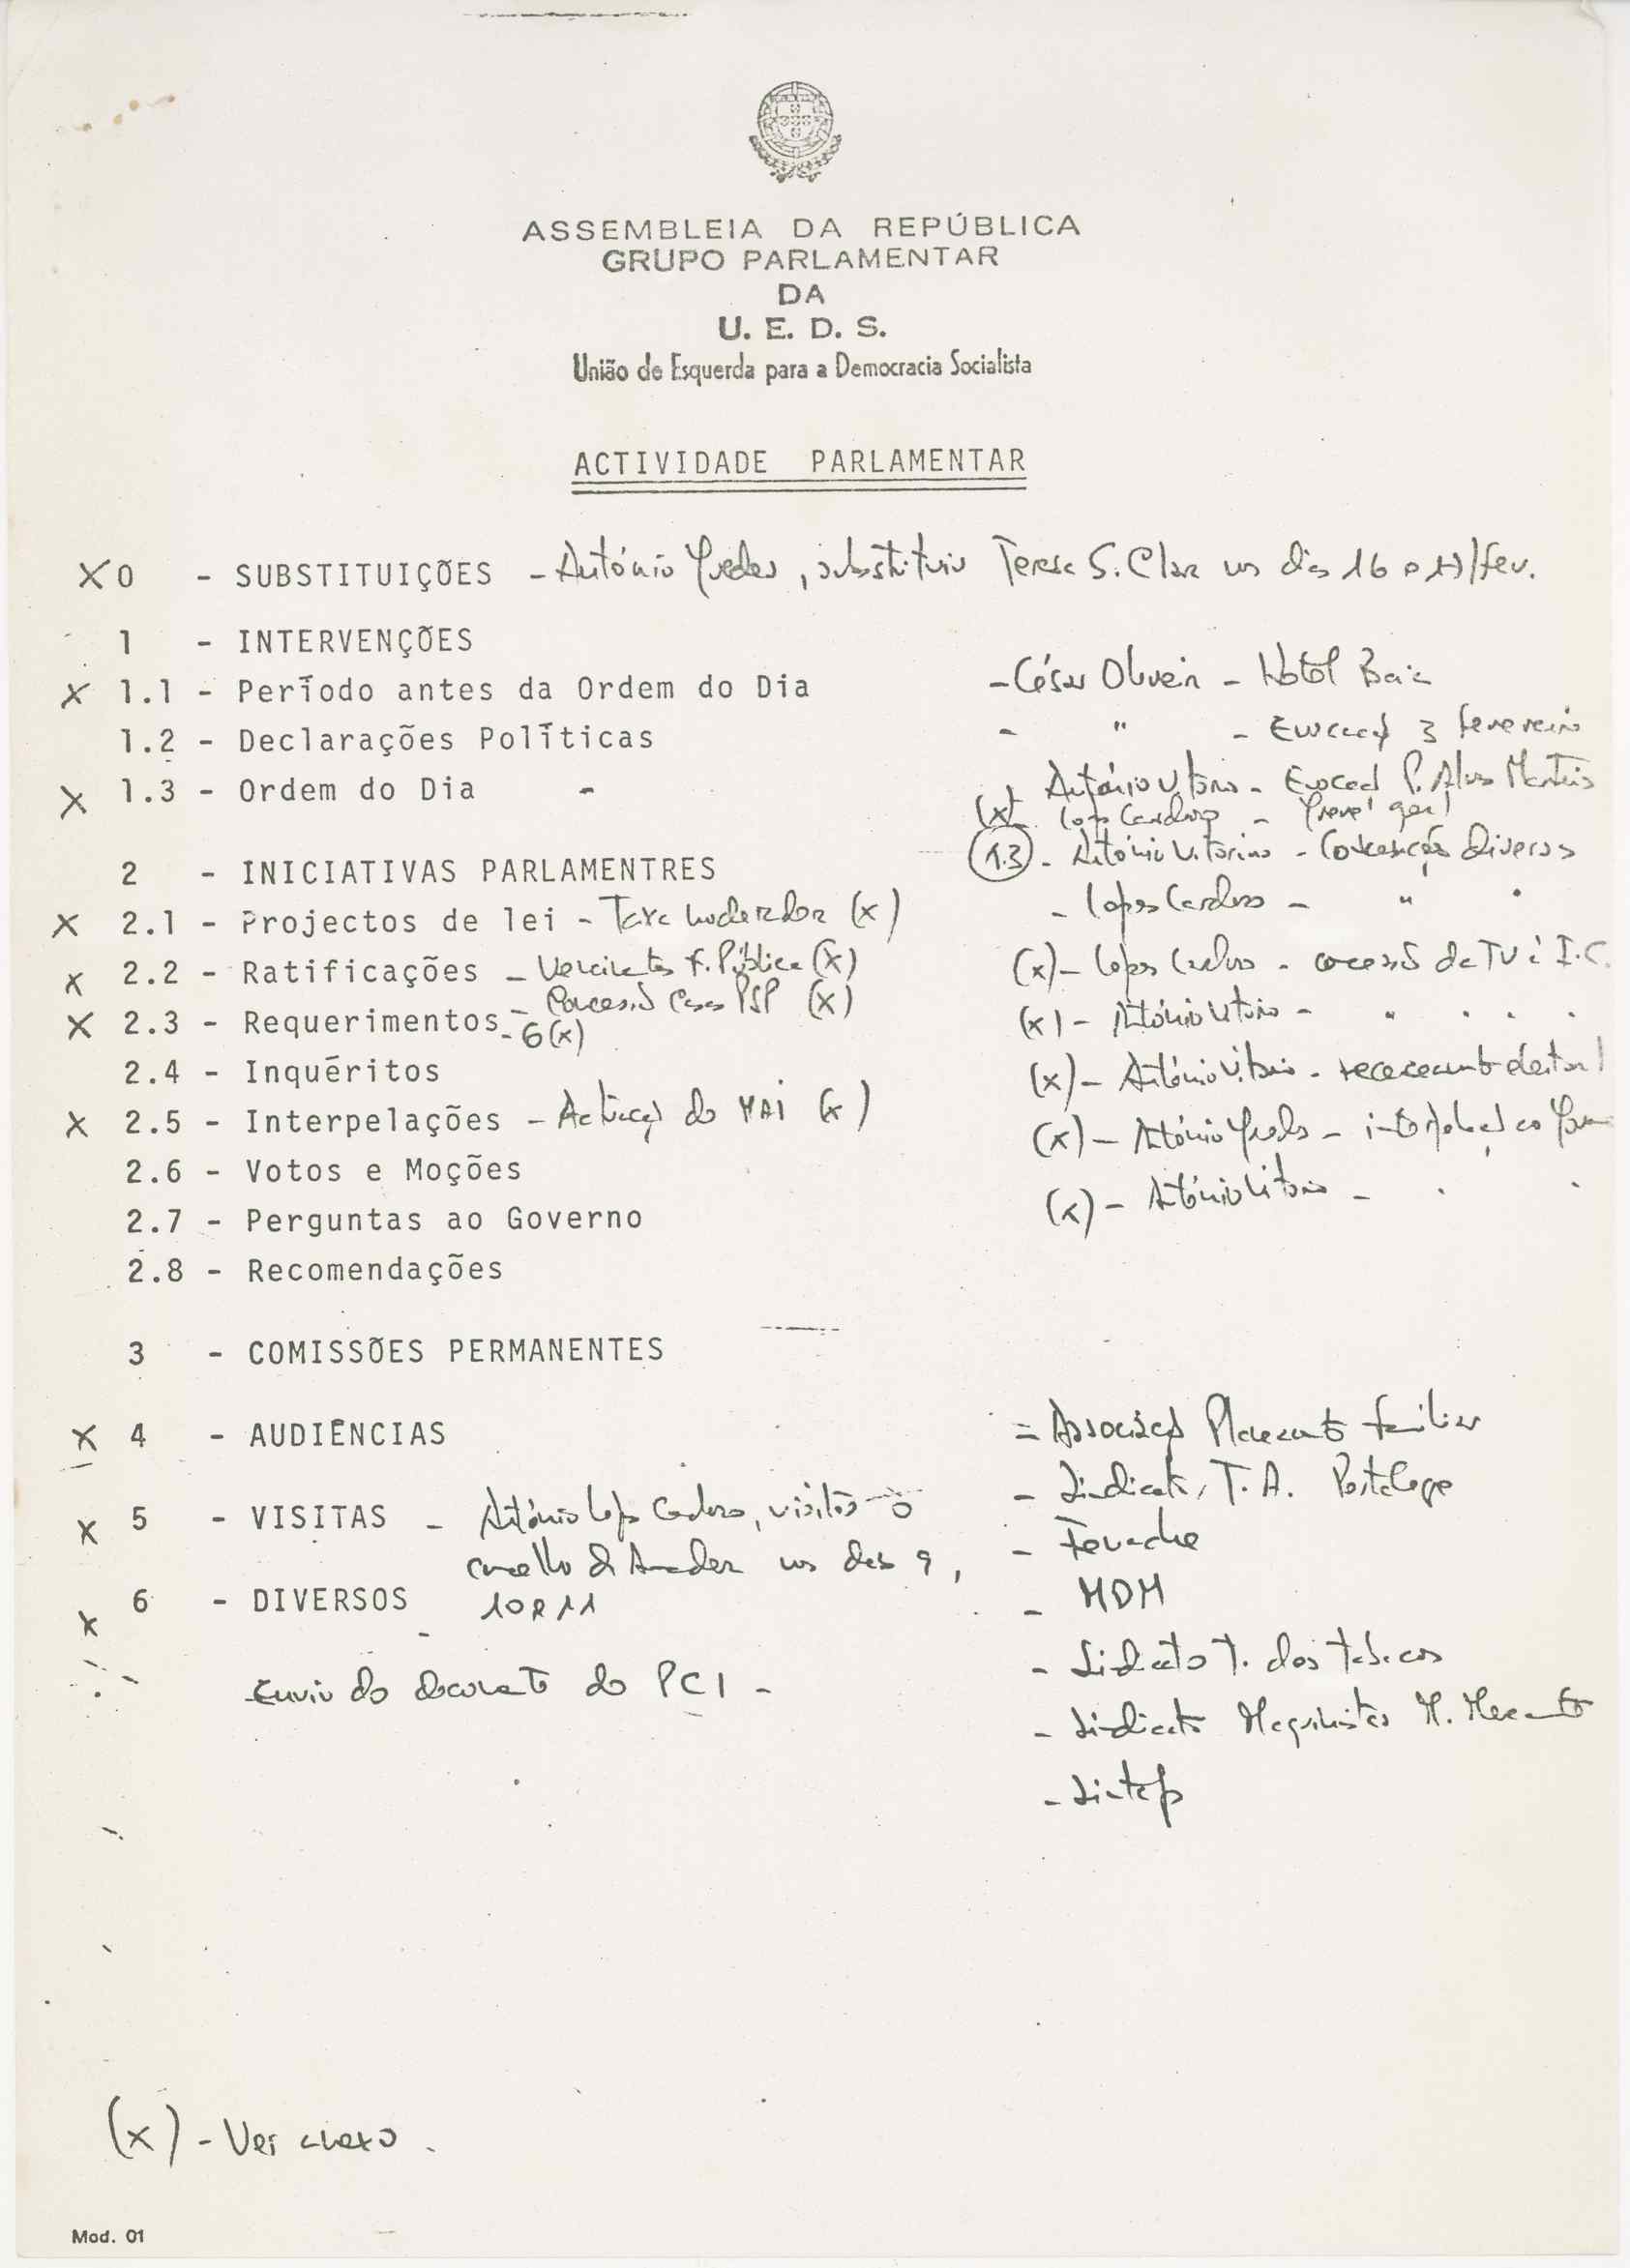 ASSEMBLEIA DA REPÚBLICA
GRUPO PARLAMENTAR
DA
U. E. D. S.
União de Esquerda para a Democracia Socialista
ACTIVIDADE PARLAMENTAR
X 0 - SUBSTITUIÇÕES - António substituiu Teresa S. Clara nos dias 16 e 17/fev.
1 - INTERVENÇÕES
X 1.1 - Período antes da Ordem do Dia - César Oliveira - Hotel Baía
1.2 - Declarações Políticas - " - Evocação 3 fevereiro
X 1.3 - Ordem do Dia - António Vitorino - Evocação P. Alves Martins
(x) Lopes Cardoso - greve geral
(1.3) - António Vitorino - Convenções Diversas
2 - INICIATIVAS PARLAMENTRES
- Lopes Cardoso - "
X 2.1 - Projectos de lei - Taxa moderadora (x)
X 2.2 - Ratificações - Vencimentos F. Pública (x) (x) - Lopes Cardoso - concessão da TV à I.C.
- Concessão Casas PSP (x)
X 2.3 - Requerimentos - 6 (x) (x) - António Vitorino - "
2.4 - Inquéritos (x) - António Vitorino - recenseamento eleitoral
X 2.5 - Interpelações - Actuação do MAI (x) (x) - António - interpelação ao
2.6 - Votos e Moções (x) - António Vitorino -
2.7 - Perguntas ao Governo
2.8 - Recomendações
3 - COMISSÕES PERMANENTES
X 4 - AUDIÊNCIAS = Associação Planeamento familiar
- Sindicato T. A. Portalegre
X 5 - VISITAS - António Lopes Cardoso, visitou o
- Fenache
concelho da Amadora nos dias 9,
X 6 - DIVERSOS 10 e 11
- MDM
- Sindicato T. dos tabacos
Envio do documento do PCI -
- Sindicato Maquinistas M. Mercante
- Sintep
(x) - Ver anexo.
Mod. 01